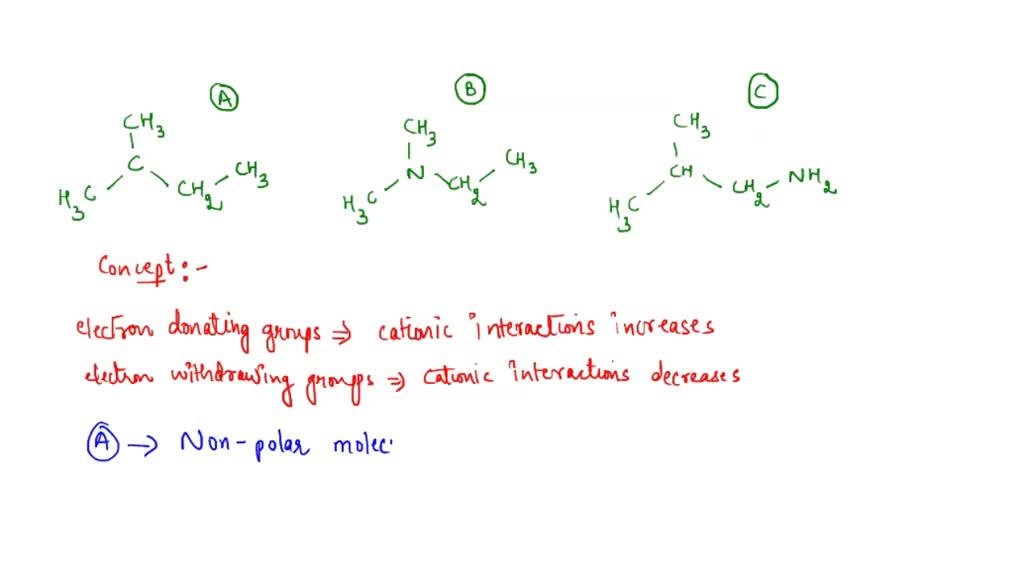 A B C
CH3 CH3 CH3
C CH3 N CH3 CH NH2
H3C CH2 H3C CH2 H3C CH2
Concept:-
electron donating groups ⇒ cationic interactions increases
electron withdrawing groups ⇒ cationic interactions decreases
A → Non-polar molec